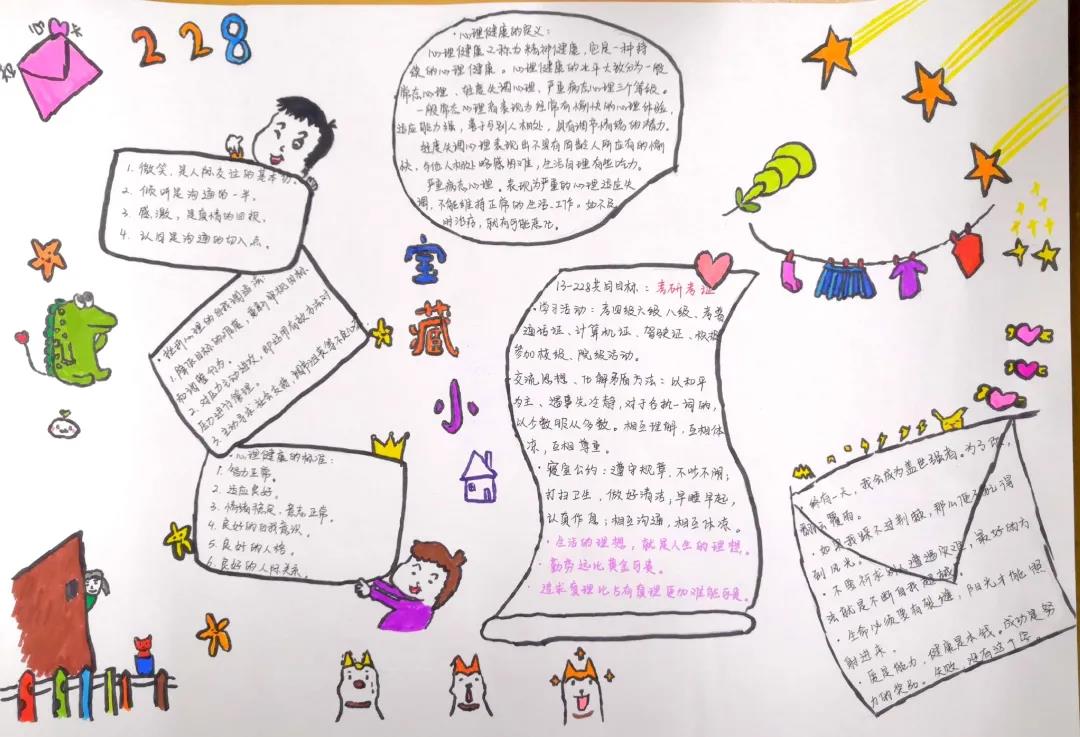 228
·心理健康的定义：
心理健康又称为精神健康，它是一种持
续的心理健康。心理健康的水平大致分为一般
常态心理、轻度失调心理、严重病态心理三个等级。
一般常态心理者表现为经常有愉快的心理体验，
适应能力强，善于与别人相处，具有调节情绪的能力。
轻度失调心理表现出不具有同龄人所应有的愉
快，与他人相处略感困难，生活自理有些吃力。
严重病态心理。表现为严重的心理适应失
调，不能维持正常的生活、工作。如不及
时治疗，就有可能恶化。
1. 微笑，是人际交往的基本功。
2. 倾听是沟通的一半。
3. 感激，是真情的回报。
4. 认同是沟通的切入点。
室
藏
小
·挫折心理的自我调适法：
1. 降低目标的难度，重新审视目标
和调整行为。
2. 对压力主动进攻，即运用有效方法对
压力进行管理。
3. 主动寻求社会支持
·心理健康的标准：
1. 智力正常。
2. 适应良好。
3. 情绪稳定，意志正常。
4. 良好的自我意识。
5. 良好的人格。
6. 良好的人际关系。
13-228共同目标：考研考证
·学习活动：考四级六级八级、考普
通话证、计算机证、驾驶证、积极
参加校级、院级活动。
交流思想、化解矛盾方法：以和平
为主、遇事先冷静，对于各执一词的，
以少数服从多数。相互理解，互相体
凉，互相尊重。
·寝室公约：遵守规章，不吵不闹；
打扫卫生，做好清洁，早睡早起，
认真作息；相互沟通，相互体凉。
·生活的理想，就是人生的理想。
·勤劳远比黄金可贵。
追求真理比占有真理更加难能可贵。
·终有一天，我会成为盖世强者。为了你，
翻云覆雨。
·如果我躲不过荆棘，那么便不配得
到风光。
·不要祈求别人遭遇灾难，最好的办
法就是不断自我超越。
·生命必须要有裂缝，阳光才能照
射进来。
·质是能力，健康是本钱。成功是努
力的奖品。失败，没有这个字。